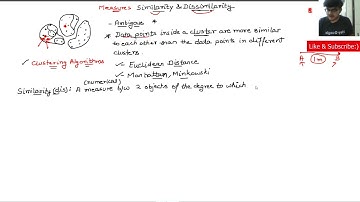 Measures Similarity & Dissimilarity
- Antigous *
* Data points inside a cluster are more similar
to each other than the data points in different
clusters.
✓ Clustering Algorithms
✓ Euclidean Distance
✓ Manhattan, Minkowski
(numerical)
Similarity (dis): A measure b/w 2 objects of the degree to which
Like & Subscribe:)
A 1m B